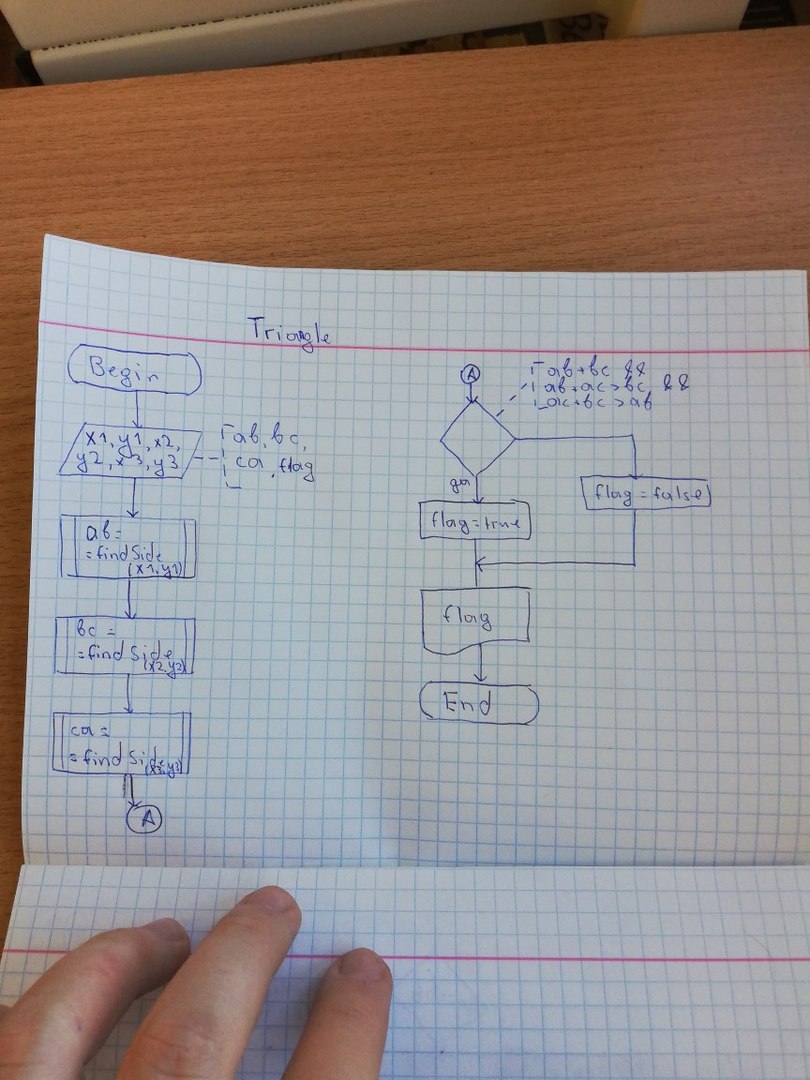 Triangle
Begin
x1, y1, x2,
y2, x3, y3
ab, bc,
ca, flag
ab =
= findSide
(x1, y1)
bc =
= findSide
(x2, y2)
ca =
= findSide
A
A
ab + bc &&
ab + ac > bc &&
ac + bc > ab
да
flag = true
flag = false
flag
End